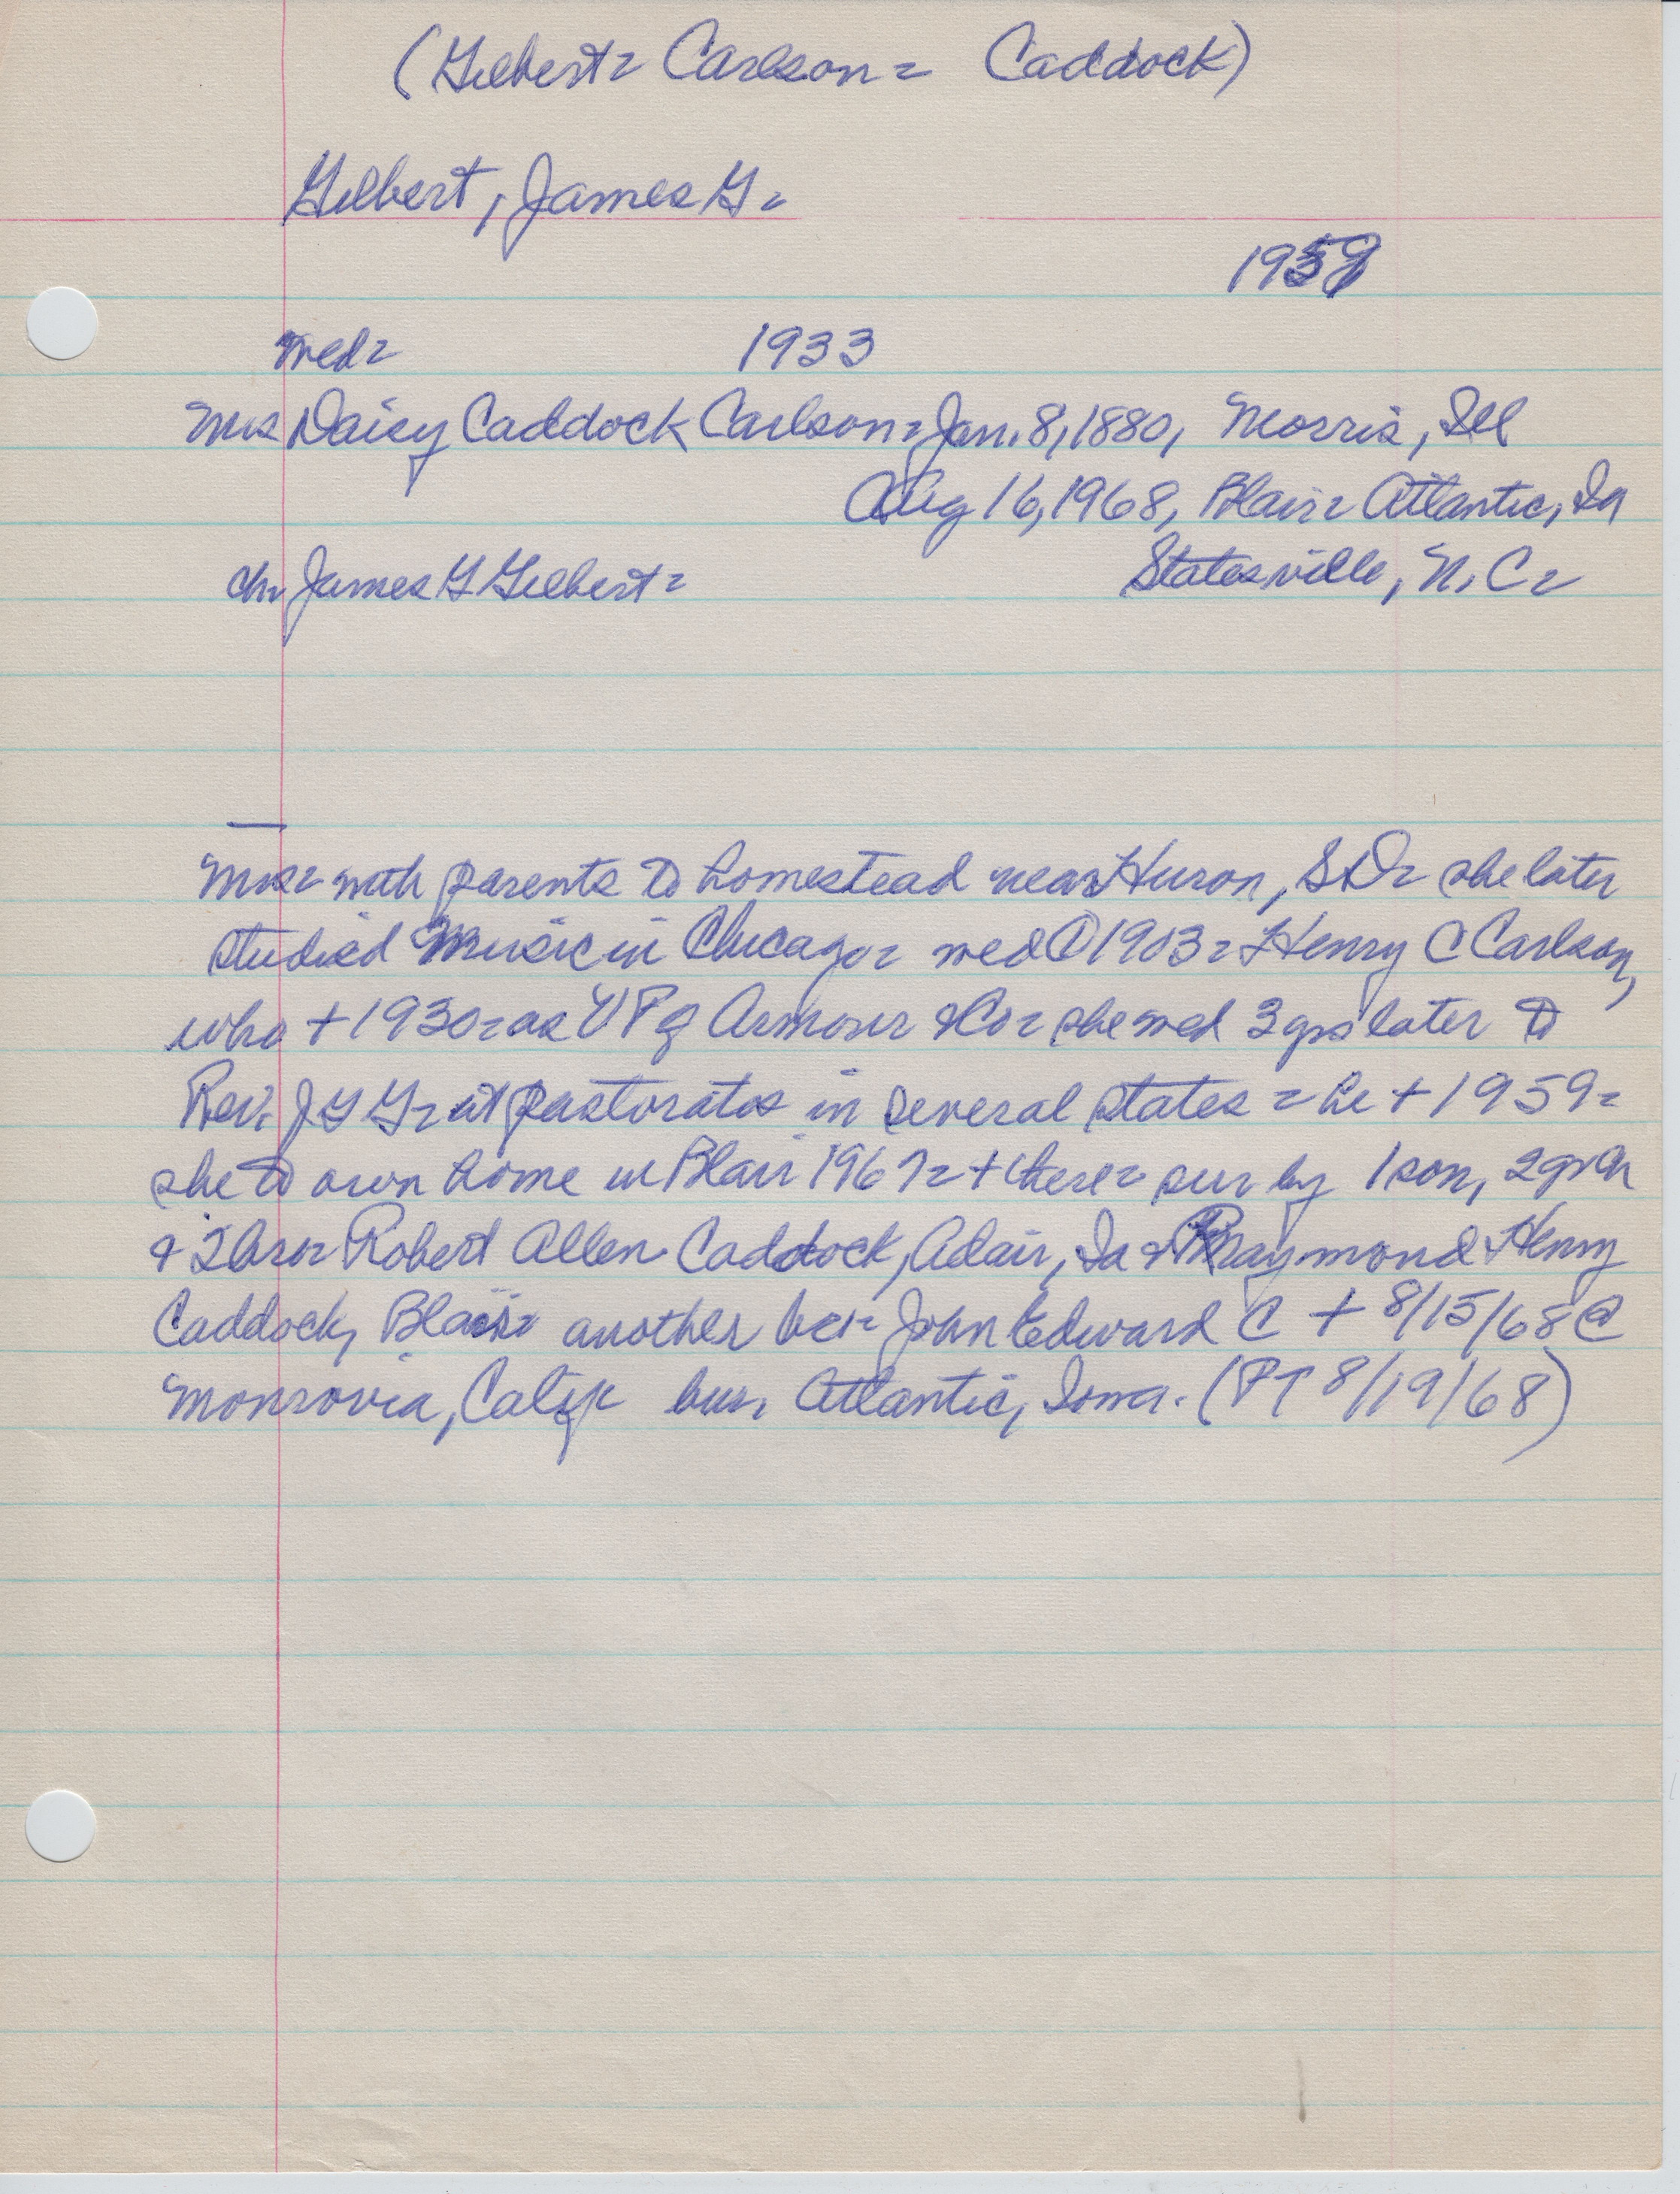 (Gilbert= Carlson= Caddock)
Gilbert, James G=
1959
wed= 1933
Mrs Daisy Caddock Carlson= Jan. 8, 1880, Morris, Ill
Aug 16, 1968, Blair= Atlantic, Ia
ch= James G Gilbert= Statesville, N.C=
Mrs= with parents to homestead near Huron, SD= she later
studied Music in Chicago= wed ① 1903= Henry C Carlson,
who + 1930= as VP of Armour & Co= she wed 3 yrs later to
Rev. J G G= at pastorates in several states= he + 1959=
she to own home in Blair 1967= + there= sur by 1 son, 2 grch
& 2 bro= Robert Allen Caddock, Adair, Ia & Raymond Henry
Caddock, Blair= another bro= John Edward C + 8/15/68 @
Monrovia, Calif bur. Atlantic, Iowa. (PT 8/19/68)